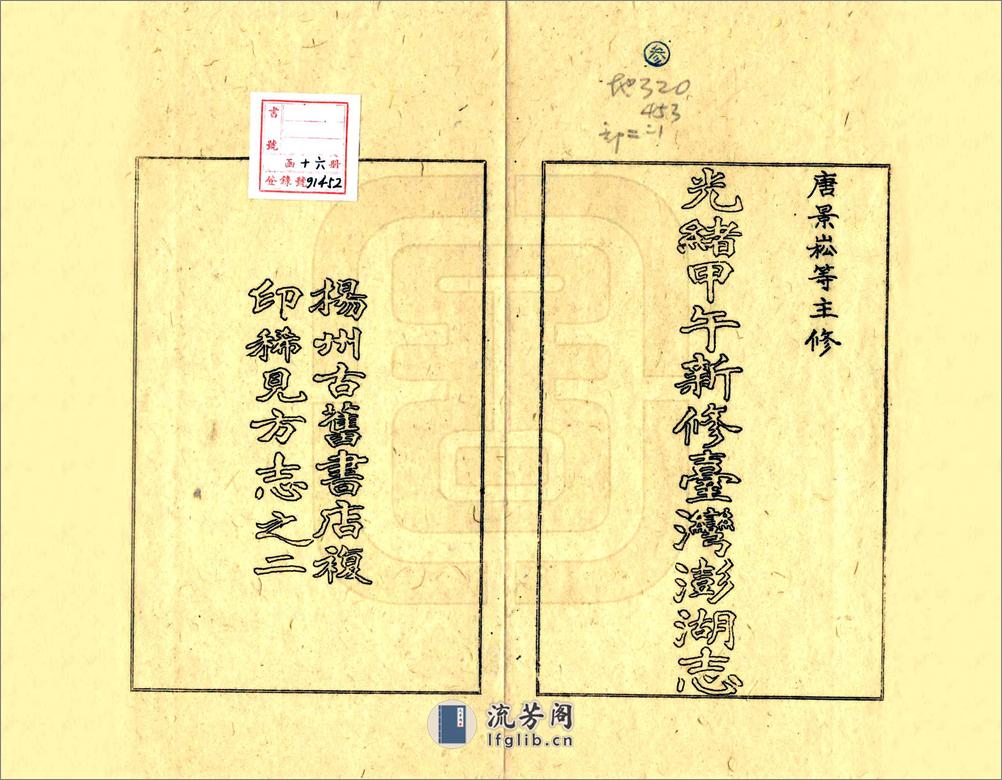 叄
地320
453
唐景崧等主修
光緒甲午新修臺灣澎湖志
書號
函十六冊
登錄號91452
揚州古舊書店複
印稀見方志之二
流芳阁
lfglib.cn